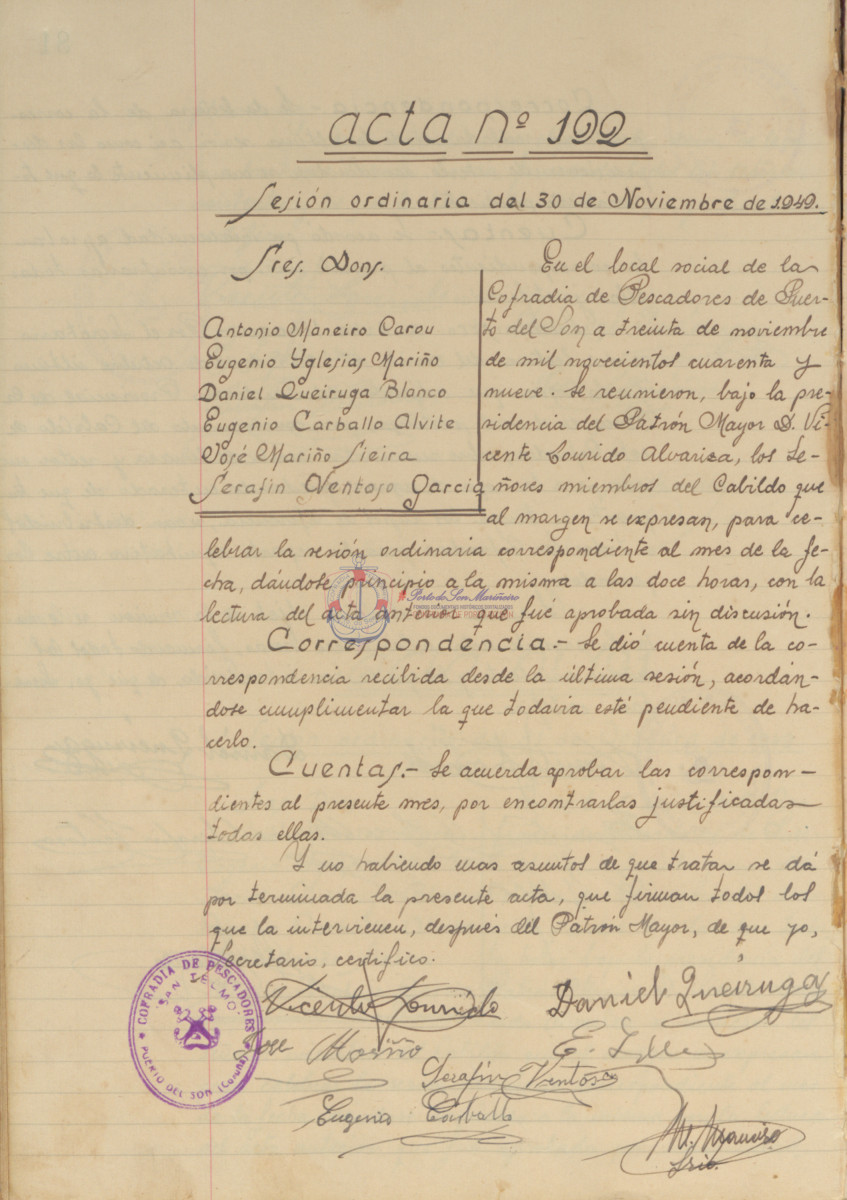 acta nº 192
Sesión ordinaria del 30 de Noviembre de 1949.
Sres. Dons.
Antonio Maneiro Carou
Eugenio Yglesias Mariño
Daniel Queiruga Blanco
Eugenio Carballo Alvite
José Mariño Sieira
Serafín Ventoso García
En el local social de la
Cofradia de Pescadores de Puer-
to del Son a treinta de noviembre
de mil novecientos cuarenta y
nueve. Se reunieron, bajo la pre-
sidencia del Patrón Mayor D. Vi-
cente Lourido Alvariza, los Se-
ñores miembros del Cabildo que
al margen se expresan, para ce-
lebrar la sesión ordinaria correspondiente al mes de la fe-
cha, dándose principio a la misma a las doce horas, con la
lectura del acta anterior que fué aprobada sin discusión.
Porto do Son Mariñeiro
Correspondencia.- Se dió cuenta de la co-
rrespondencia recibida desde la última sesión, acordán-
dose cumplimentar la que todavia esté pendiente de ha-
cerlo.
Cuentas.- Se acuerda aprobar las correspon-
dientes al presente mes, por encontrarlas justificadas
todas ellas.
Y no habiendo mas asuntos de que tratar se dá
por terminada la presente acta, que firman todos los
que la intervienen, después del Patrón Mayor, de que yo,
Secretario, certifico.
COFRADIA DE PESCADORES
"SAN TELMO"
PUERTO DEL SON (Coruña)
Vicente Lourido
Daniel Queiruga
José Mariño
Serafín Ventoso
Eugenio Carballo
Srio.